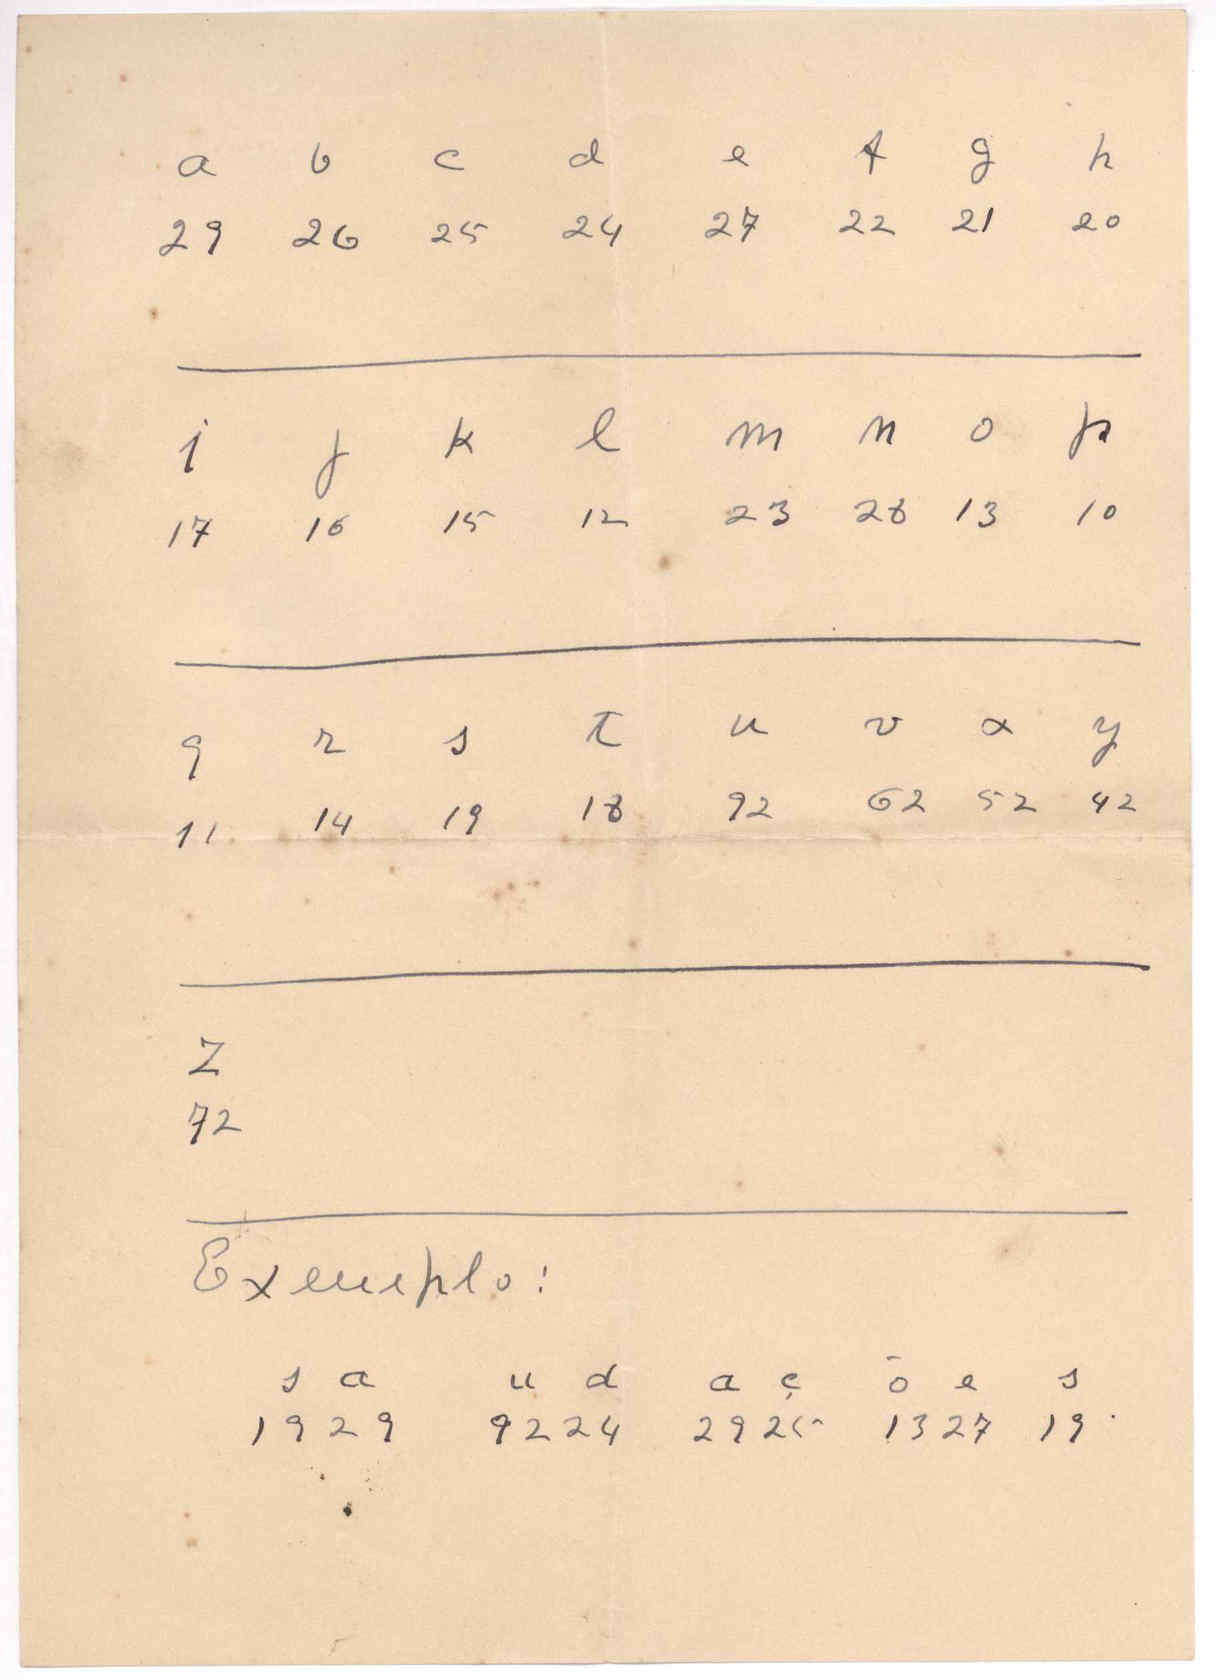 a b c d e f g h
29 26 25 24 27 22 21 20
i j k l m n o p
17 16 15 12 23 28 13 10
q r s t u v x y
11 14 19 18 92 62 52 42
z
72
Exemplo:
s a u d a ç õ e s
1929 9224 2925 1327 19.